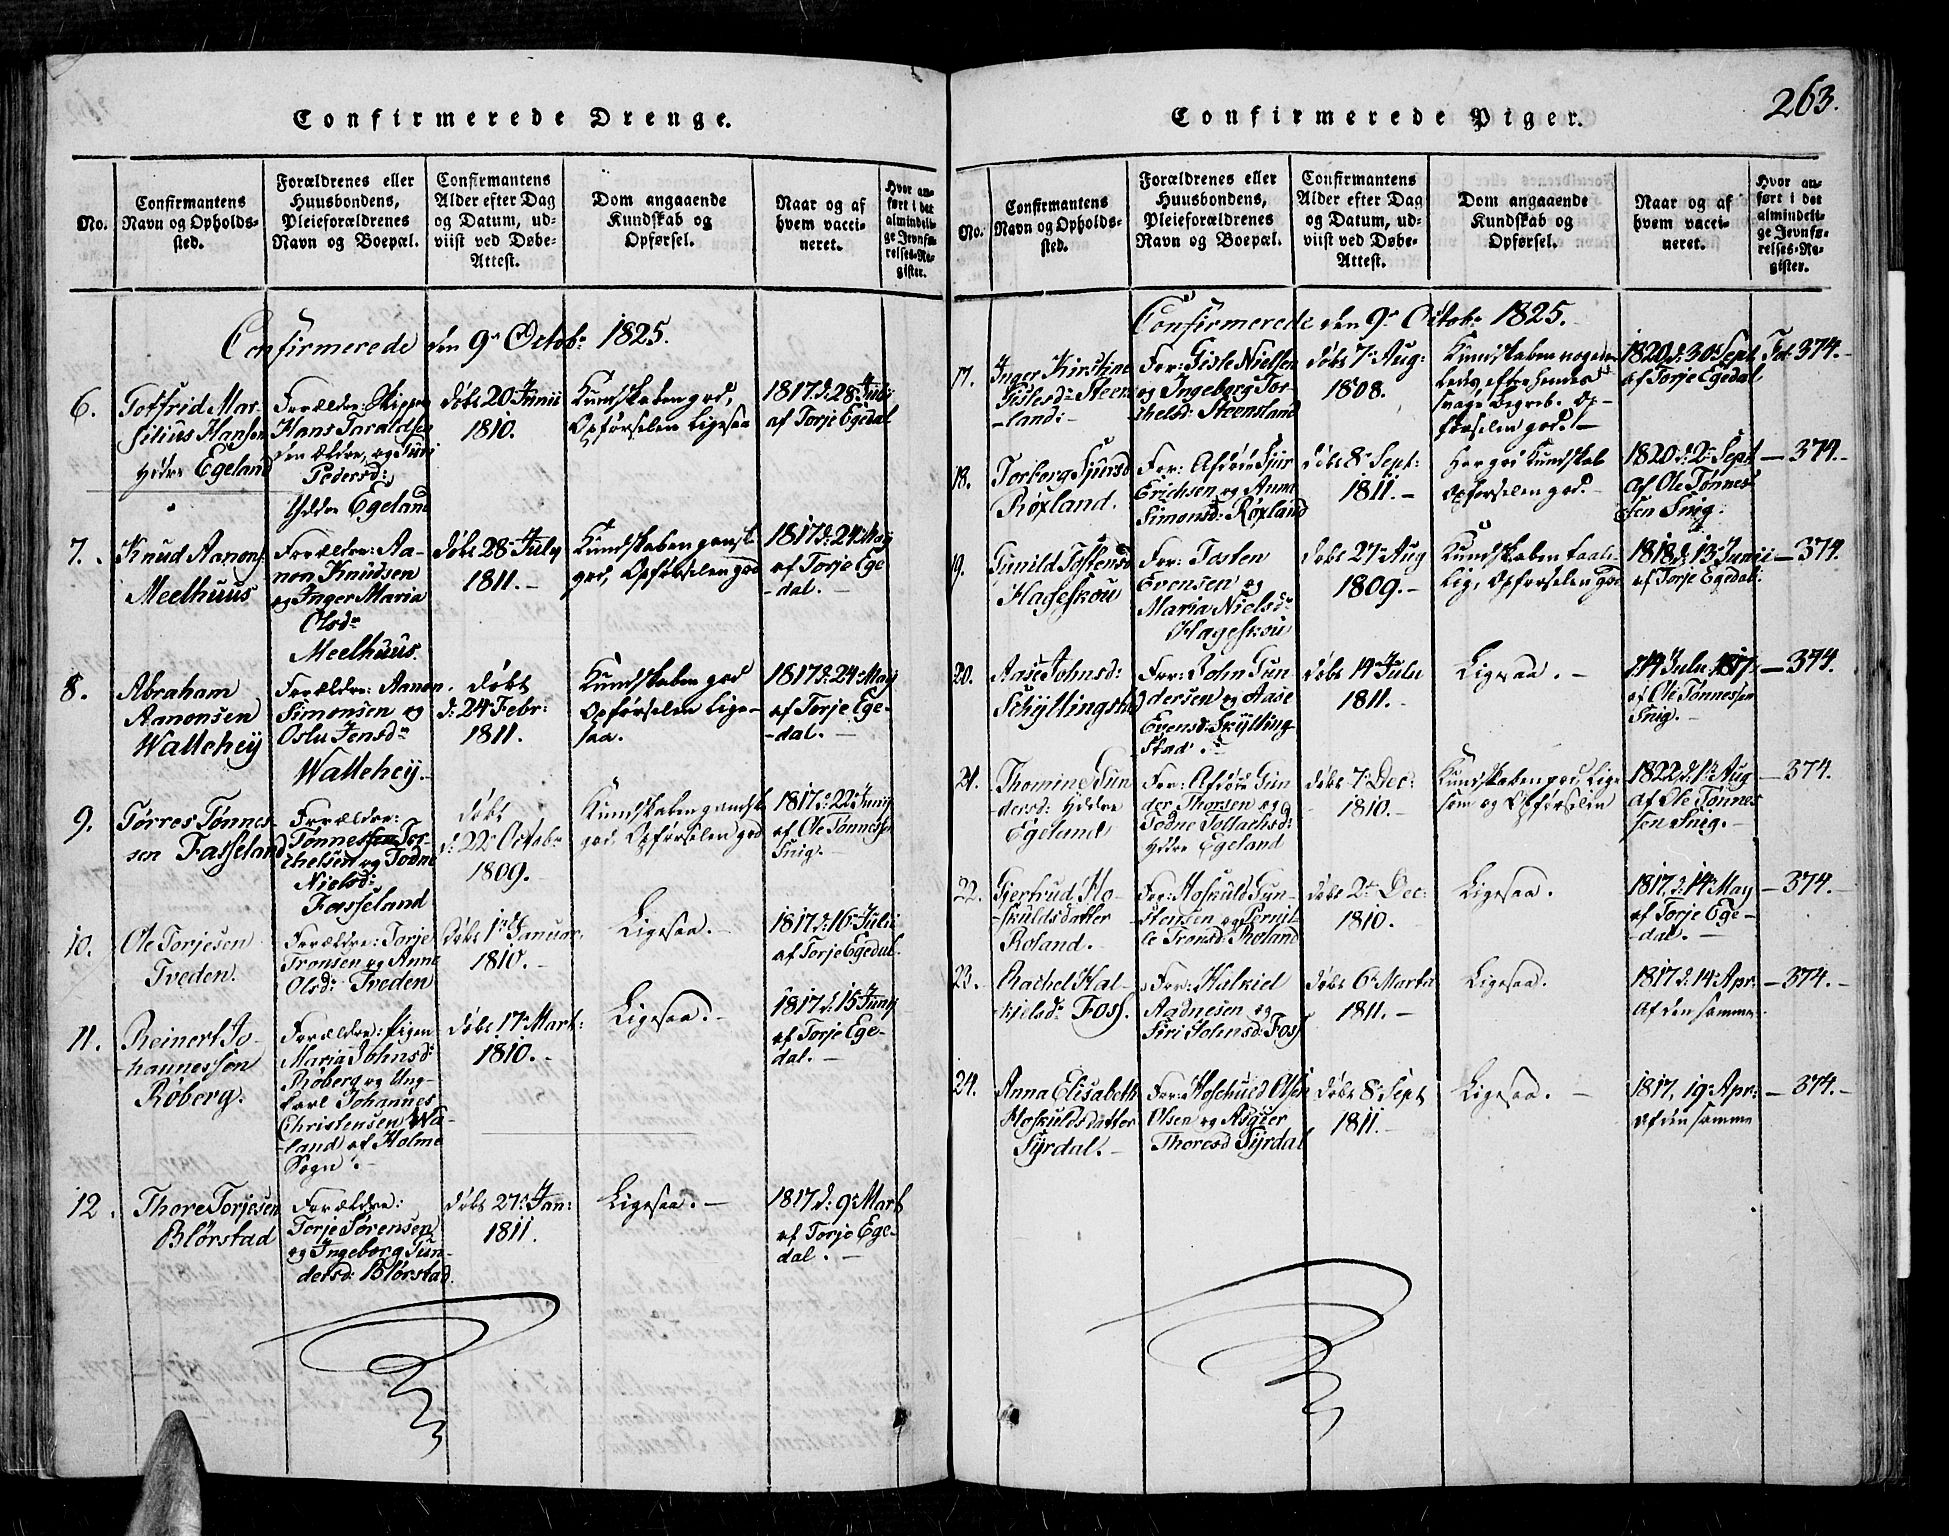 263.
Confirmerede Drenge.
No.
Confirmantens
Navn og Opholds-
sted.
Forældrenes eller
Huusbondens,
Pleieforældrenes
Navn og Boepæl.
Confirmantens
Alder efter Dag
og Datum, ud-
viist ved Døbe-
Attest.
Dom angaaende
Kundskab og
Opførsel.
Naar og af
hvem vacci-
neret.
Hvor an-
ført i det
almindeli-
ge Jevnfø-
relses-Re-
gister.
Confirmerede den 9de Octob: 1825.
6.
Gotfrid Mar-
silius Hansen
Ydre Egeland
Forældre: Skipper
Hans Taraldsen
den ældre, og Guri
Pedersd:
Ydre Egeland
døbt 20 Junii
1810.
Kundskaben god,
Opførselen Ligesaa
1817 d: 28 Juli
af Torje Egedal
7.
Knud Aanons:
Meelhuus
Forældre: Aa-
non Knudsen
og Inger Maria
Olsdr
Meelhuus.
døbt 28 July
1811. —
Kundskaben ganske
god, Opførselen god
1817 d: 24 May
af Torje Ege
-dal. —
8.
Abraham
Aanonsen
Wallehey
Forældre: Aanon
Simonsen og
Oslu Jensdr
Wallehey.
døbt
d: 24 Febr:
1811.
Kundskaben god
Opførselen Lige-
saa.
1817 d: 24 May
af Torje Ege-
-dal. —
9.
Tørres Tønnes-
sen Fasseland
Forældre:
Tønnes Tor-
chelsen og Todne
Nielsd:
Fasseland
døbt
d: 22 Octobr
1809.
Kundskaben gandske
god, Opførselen god
1817 d: 22 Junij
af Ole Tønnessen
Snig. —
10.
Ole Torjesen
Tveden.
Forældre: Torje
Tronsen og Anne
Olsd: Tveden
døbt 1 Januar.
1810. —
Ligesaa. —
1817 d: 16 Julii
af Torje Egedal.
11.
Reinert Jo-
hannessen
Røberg.
Forældre: Pigen
Maria Johnsd:
Røberg og Ung-
karl Johannes
Christensen Wa-
-land af Holme
Sogn. —
døbt 17 Mart:
1810. —
Ligesaa. —
1817 d: 15 Junij
af Torje Ege-
dal. —
12.
Thore Torjesen
Blørstad
Forældre:
Torje Sørensen
og Ingeborg Gun-
dersd: Blørstad.
døbt 27 Jan:
1811.
Ligesaa. —
1817 d: 9 Mart
af Torje Ege-
dal. —
Confirmerede Piger.
No.
Confirmantens
Navn og Opholds-
sted.
Forældrenes eller
Huusbondens,
Pleieforældrenes
Navn og Boepæl.
Confirmantens
Alder efter Dag
og Datum, ud-
viist ved Døbe-
Attest.
Dom angaaende
Kundskab og
Opførsel.
Naar og af
hvem vacci-
neret.
Hvor an-
ført i det
almindeli-
ge Jevnfø-
relses-Re-
gister.
Confirmerede den 9de Octobr 1825.
17.
Inger Kirstine
Gislesdr Steens
-land:
For: Gisle Nielsen
og Ingeborg Tor-
chelsd: Steensland
døbt 7 Aug:
1808.
Kundskaben nogen-
ledes, efter hendes
svage Begreb. Op-
førselen god. —
1820 d: 30 Sept
af Torje Egedal
Fol: 374. —
18.
Torborg Sjursd
Røxland.
For: Afdøde Sjur
Erichsen og Anna
Simonsd: Røxland
døbt 8 Sept:
1811. —
Har god Kundskab
Opførselen god. —
1820 d: 2 Sept
Af Ole Tønnes
sen Snig.
— 374. —
19.
Gunild Tostensd
Hageskou
For: Tosten
Evensen og
Maria Nielsdr
Hageskou
døbt 27 Aug
1809. —
Kundskaben taale-
lig, Opførselen god
1818 d: 13 Junii
af Torje Egedal:
— 374.
20.
Aase Johnsd:
Schyllingstad
For: John Gun-
dersen og Aase
Evensd: Skylling-
stad. —
døbt 14 Julii
1811. —
Ligesaa. —
14 Julu 1817.
af Ole Tønnessen
Snig. —
— 374.
21.
Thomine Gun
dersd: Ydre
Egeland
For: Afdøde Gun
der Thorsen og
Todne Tollachsd:
Ydre Egeland
døbt 7 Dec:
1810. —
Kundskaben god, Lige
som og Opførselen
1822 d: 1 Aug
Af Ole Tønnes
sen Snig. —
— 374.
22.
Gjertrud Ho-
skuldsdatter
Roland. —
For: Hoskuld Gun-
stensen og
le Tronsd: Roland
døbt 2 Dec:
1810. —
Ligesaa.
1817. d: 14 May
af Torje Ege-
-dal. —
— 374. —
23.
Rachel Hal-
kjelsdr Foss.
For: Halkiel
Aadnesen og
Siri Johnsd: Foss
døbt 6 Martii
1811. —
Ligesaa.
1817 d. 14 Apr.
Af den samme.
— 374. —
24.
Anna Elisabeth
Hoskulds datter
Syrdal. —
For: Hoschuld Olsen
Olsen og Asgier
Thoresd Syrdal
døbt 8 Sept
1811. —
Ligesaa. —
1817, 19 Apr:
Af den samme
— 374. —